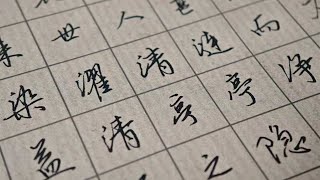 来世人
染濯清涟而
益清亭亭净
之隐